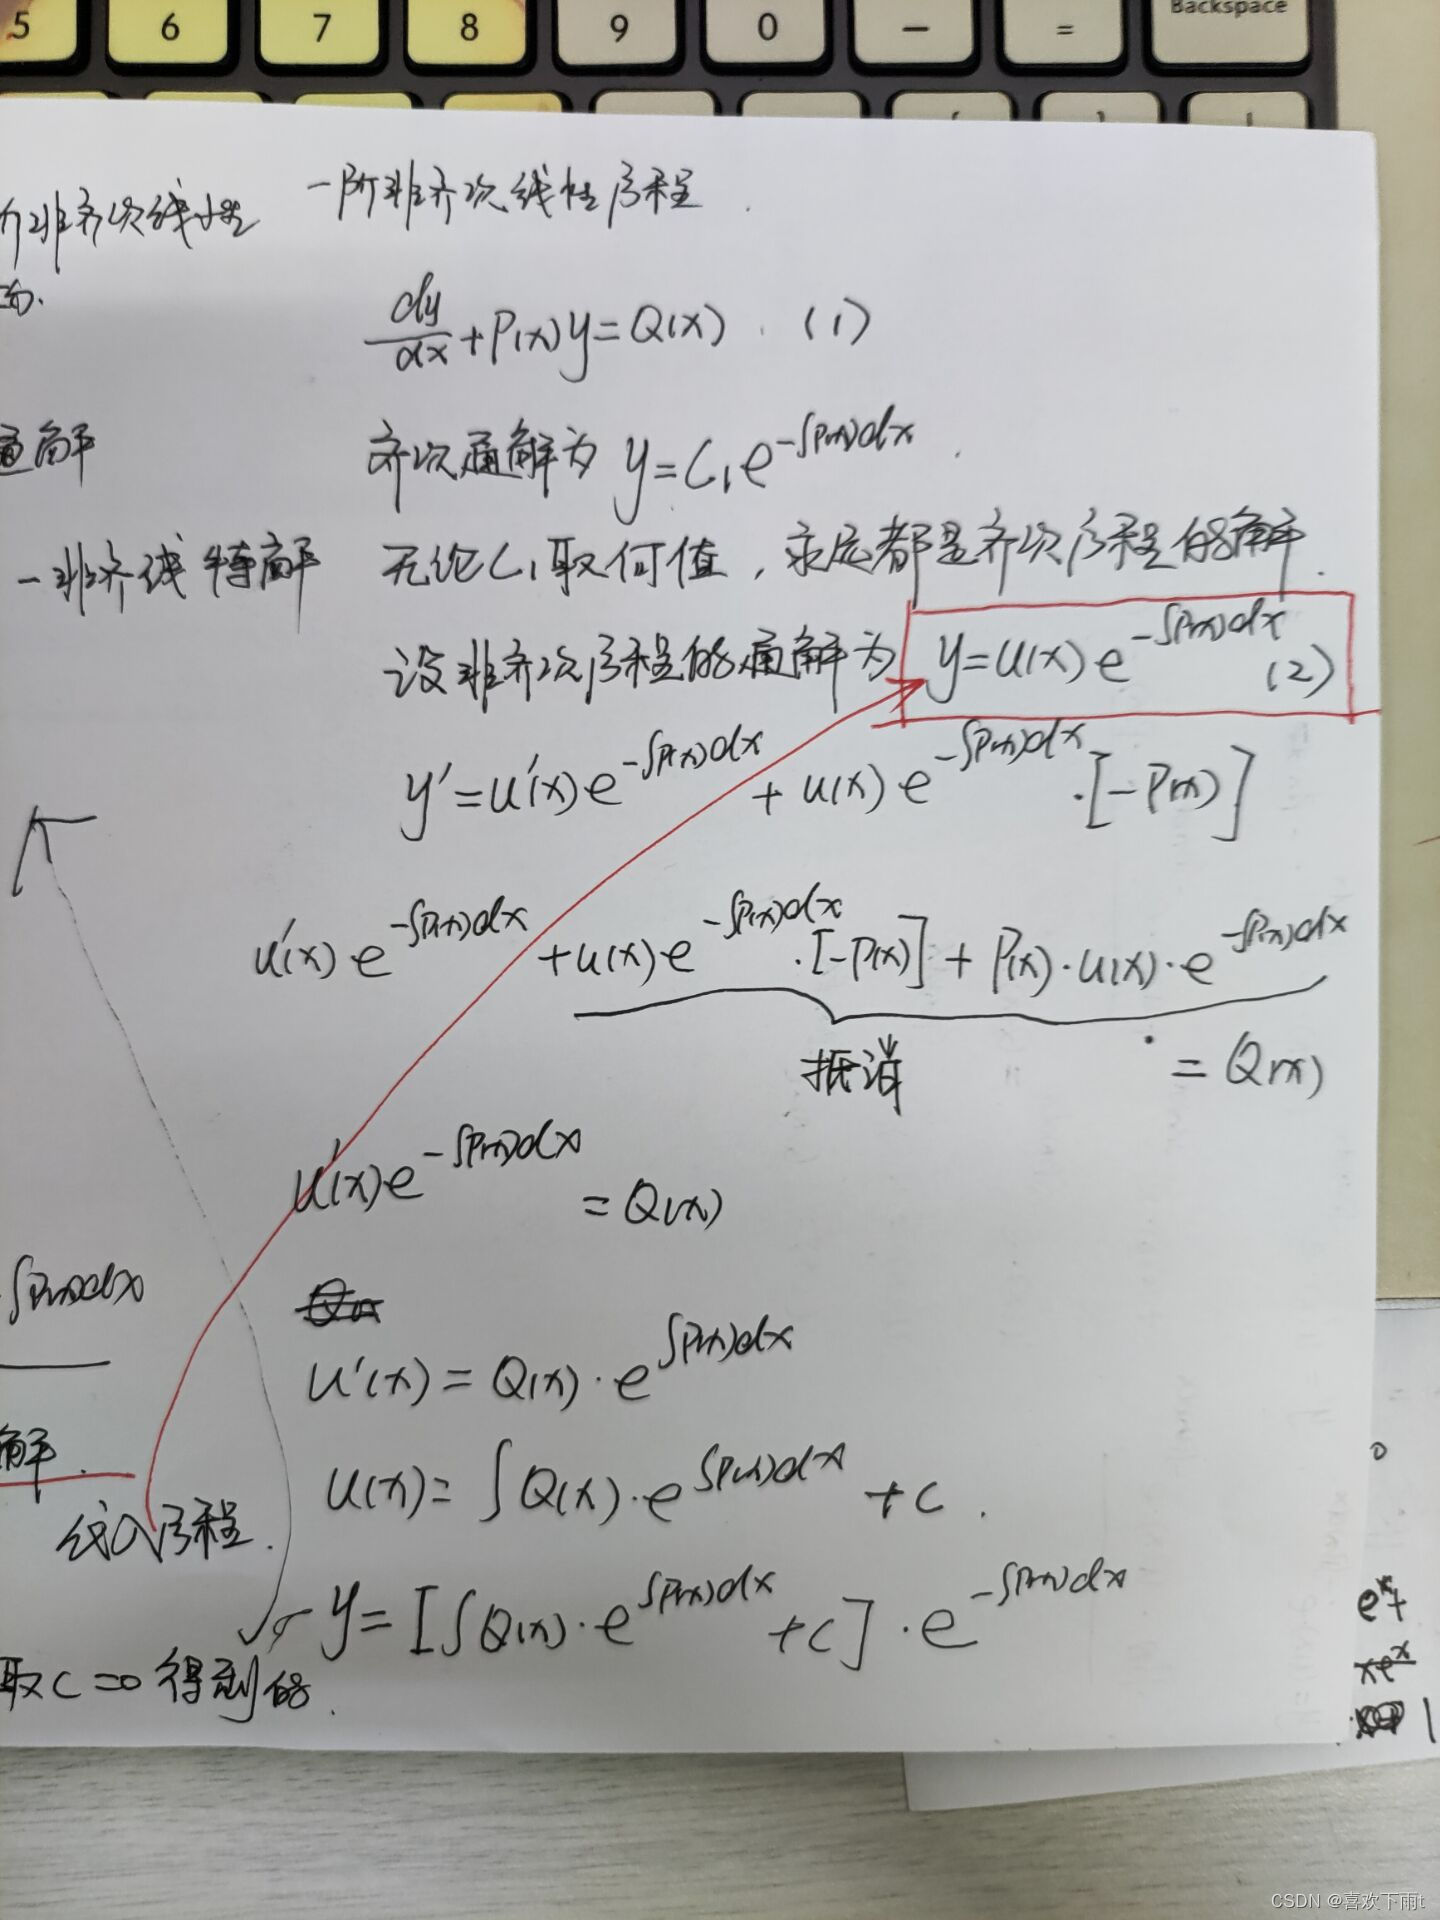 5 6 7 8 9 0 − = Backspace
阶非齐次线性
一阶非齐次线性方程.
dy/dx+P(x)y=Q(x). (1)
通解
齐次通解为 y=C₁e^{-∫P(x)dx}.
一非齐线特解
无论C₁取何值,求应都是齐次方程的解.
设非齐次方程的通解为 y=u(x)e^{-∫P(x)dx} (2)
y'=u'(x)e^{-∫P(x)dx}+u(x)e^{-∫P(x)dx}·[-P(x)]
u'(x)e^{-∫P(x)dx}+u(x)e^{-∫P(x)dx}·[-P(x)]+P(x)·u(x)·e^{-∫P(x)dx}
抵消 =Q(x)
u'(x)e^{-∫P(x)dx}=Q(x)
∫P(x)dx
u'(x)=Q(x)·e^{∫P(x)dx}
解.
u(x)=∫Q(x)·e^{∫P(x)dx}+c.
方程.
y=[∫Q(x)·e^{∫P(x)dx}+c]·e^{-∫P(x)dx}
取C=0得到的.
eˣ+
xeˣ
1
CSDN @喜欢下雨t